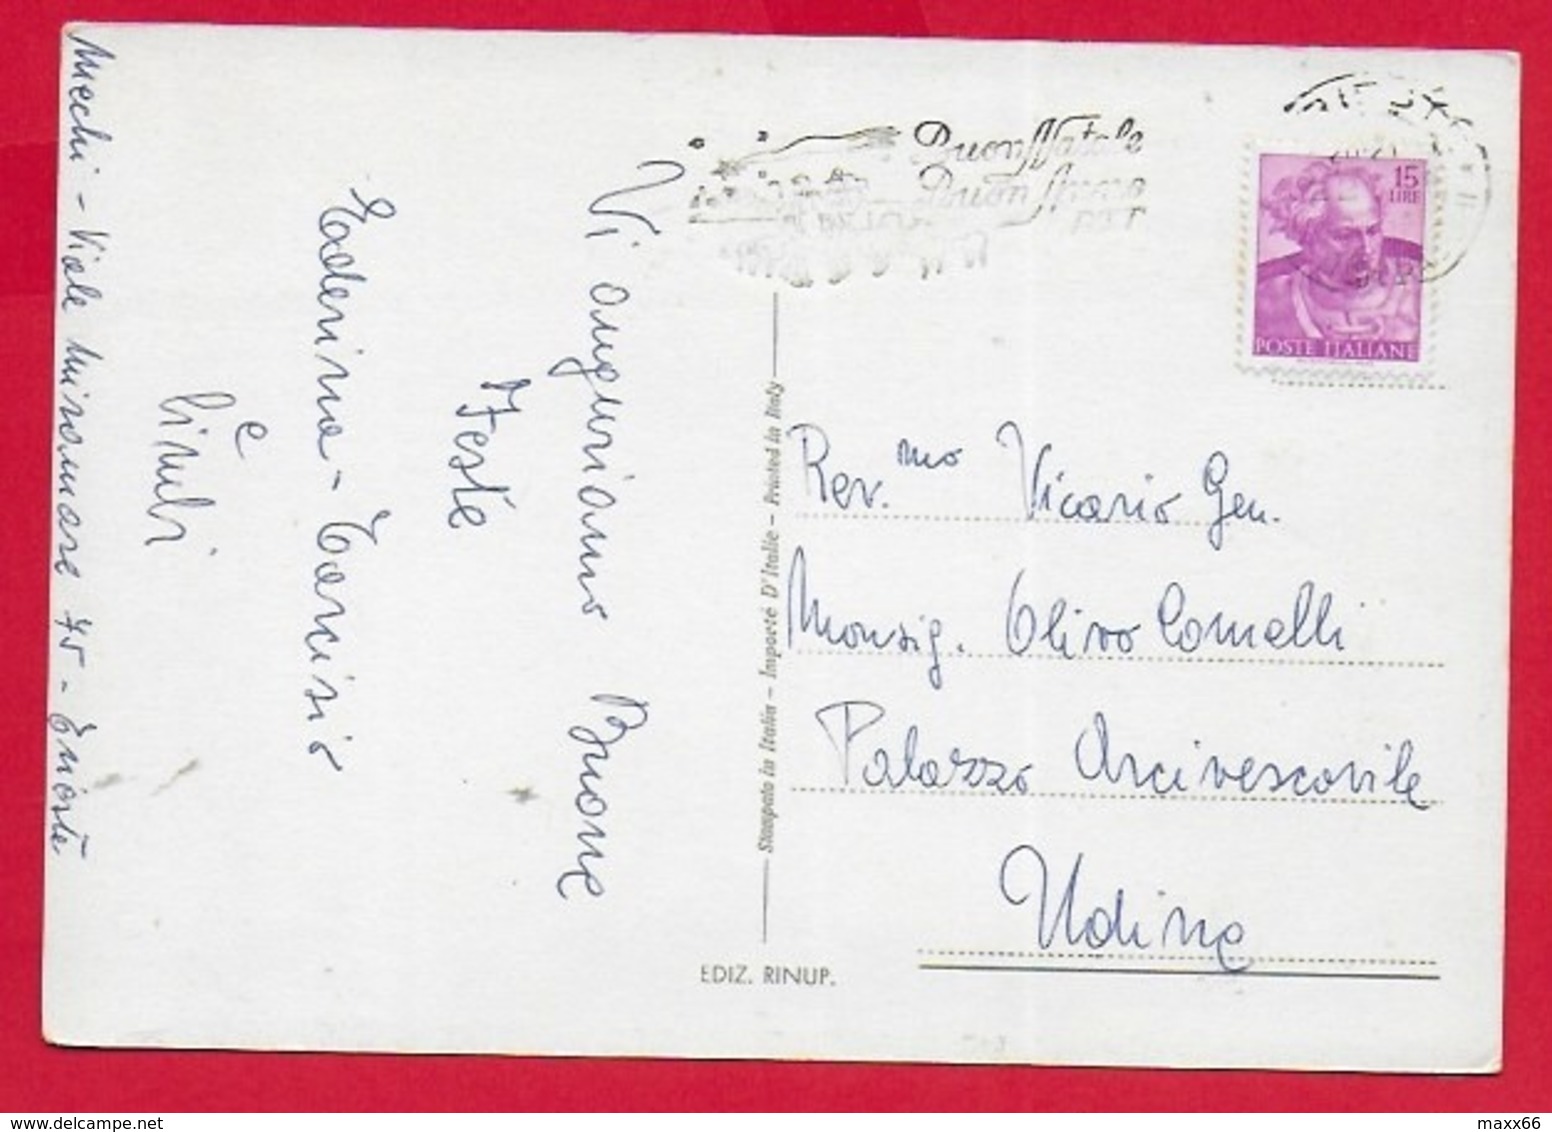 Buon Natale
Buon Anno
P.T.
15
LIRE
POSTE ITALIANE
Vi auguriamo Buone
Feste
Ederina - Tarcisio
e
Miechi - Viale Miramare 75 - Trieste
Stampato in Italia - Importé D'Italie - Printed in Italy
Rev.mo Vicario Gen.
Monsig. Olivo Comelli
Palazzo Arcivescovile
Udine
EDIZ. RINUP.
maxx66